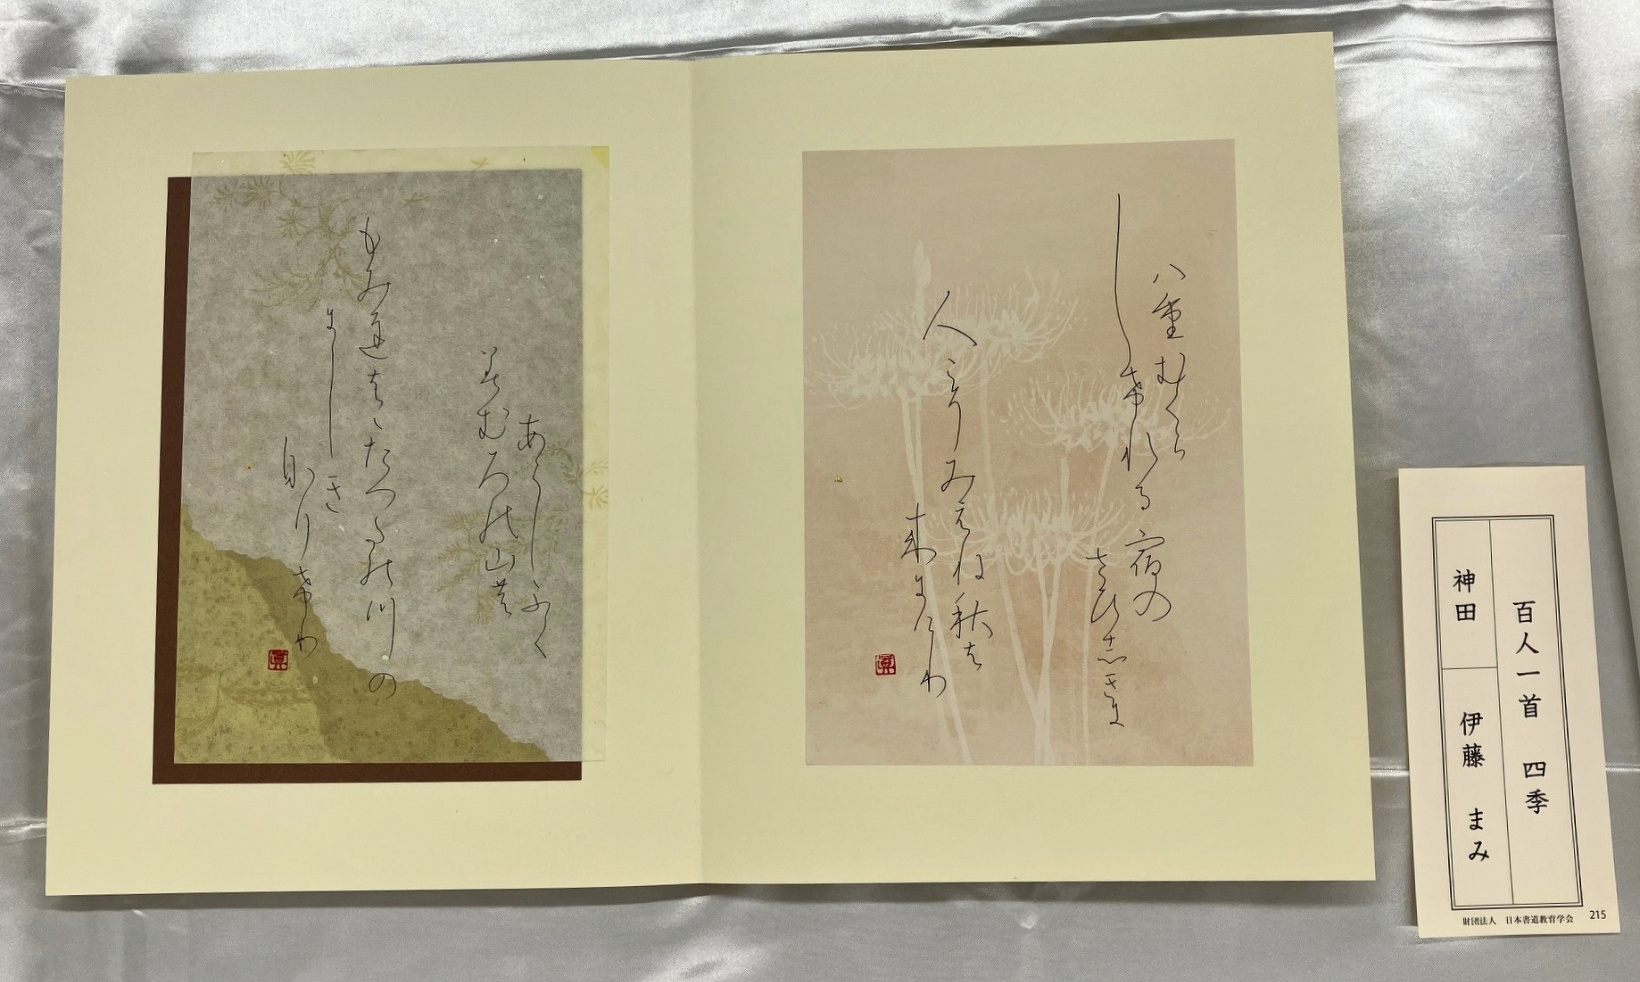 八重むくら
しけれる宿の
さひ志きに
人こそみえね秋は
来にけり
あらしふく
美むろ能山農
もみ遅はゝたつた能川の
にしき
なりけり
百人一首 四季
神田 伊藤 まみ
財団法人 日本書道教育学会 215